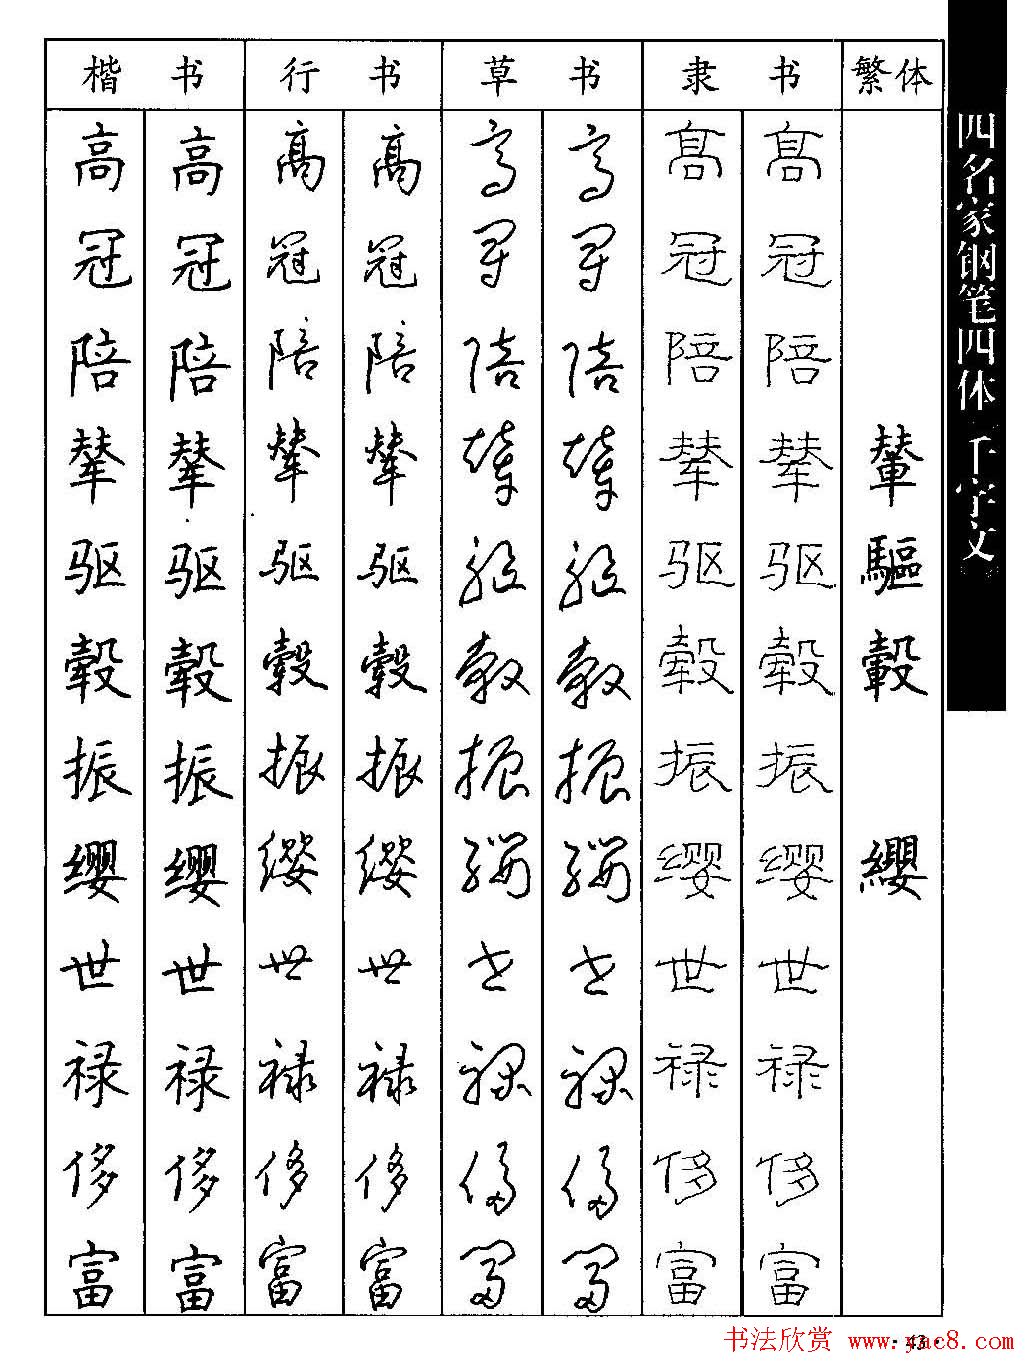 楷书 行书 草书 隶书 繁体
高 高 高 高 高 高 高 高
冠 冠 冠 冠 冠 冠 冠 冠
陪 陪 陪 陪 陪 陪 陪 陪
辇 辇 辇 辇 辇 辇 辇 辇 輦
驱 驱 驱 驱 驱 驱 驱 驱 驅
毂 毂 毂 毂 毂 毂 毂 毂 轂
振 振 振 振 振 振 振 振
缨 缨 缨 缨 缨 缨 缨 缨 纓
世 世 世 世 世 世 世 世
禄 禄 禄 禄 禄 禄 禄 禄
侈 侈 侈 侈 侈 侈 侈 侈
富 富 富 富 富 富 富 富
四名家钢笔四体千字文
·43·
书法欣赏 www.yac8.com